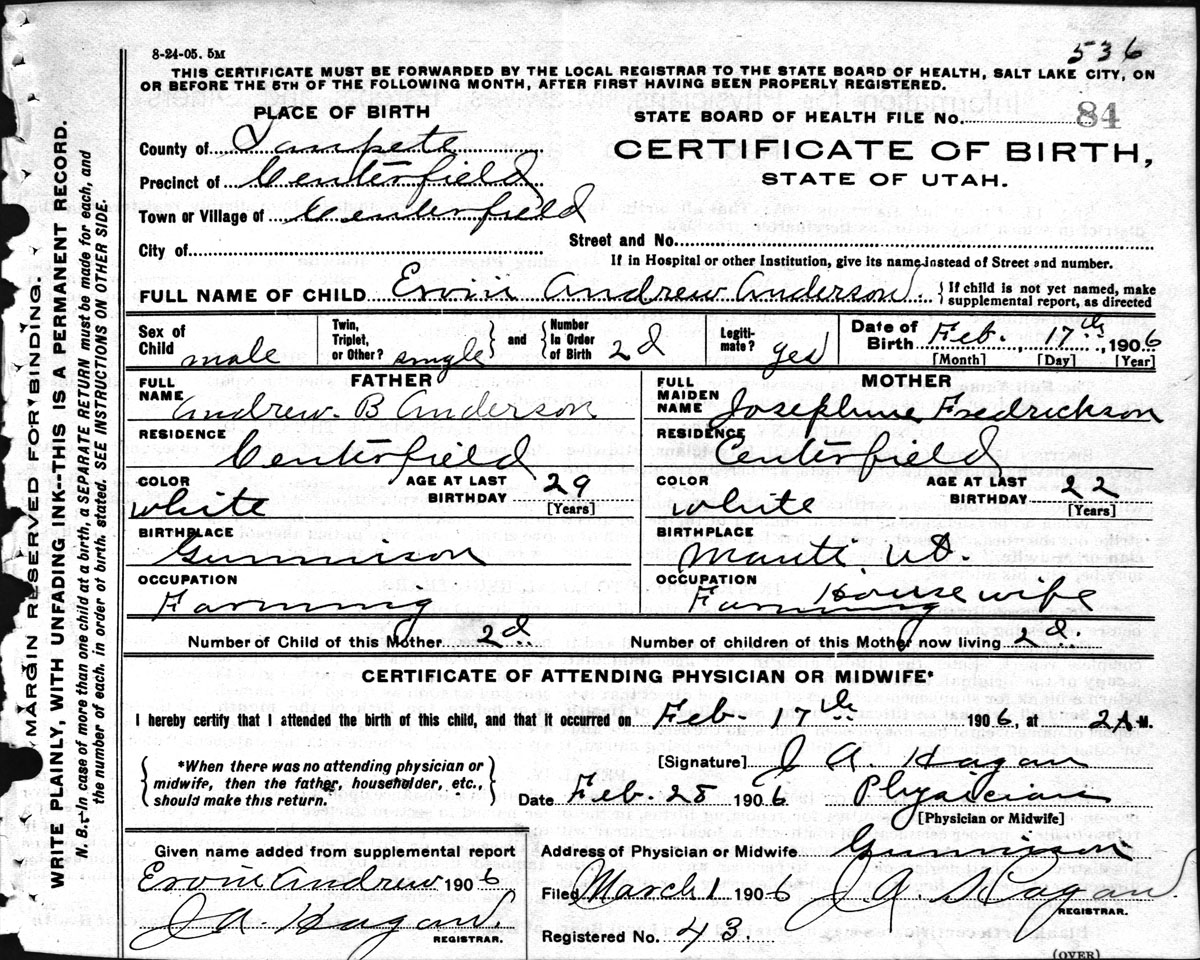 8-24-05. 5M
536
THIS CERTIFICATE MUST BE FORWARDED BY THE LOCAL REGISTRAR TO THE STATE BOARD OF HEALTH, SALT LAKE CITY, ON
OR BEFORE THE 5TH OF THE FOLLOWING MONTH, AFTER FIRST HAVING BEEN PROPERLY REGISTERED.
PLACE OF BIRTH
STATE BOARD OF HEALTH FILE No. 84
County of Sanpete
CERTIFICATE OF BIRTH,
STATE OF UTAH.
Precinct of Centerfield
Town or Village of Centerfield
City of
Street and No.
If in Hospital or other Institution, give its name instead of Street and number.
FULL NAME OF CHILD Ervin Andrew Anderson. { If child is not yet named, make
supplemental report, as directed
Sex of
Child male
Twin,
Triplet,
or Other? single } and { Number
In Order
of Birth 2d
Legiti-
mate? yes
Date of
Birth Feb., 17th, 1906
[Month] [Day] [Year]
FATHER
FULL
NAME Andrew. B Anderson
RESIDENCE
Centerfield
COLOR
white
AGE AT LAST
BIRTHDAY 29
[Years]
BIRTHPLACE
Gunnison
OCCUPATION
Farming
MOTHER
FULL
MAIDEN
NAME Josephine Fredrickson
RESIDENCE
Centerfield
COLOR
white
AGE AT LAST
BIRTHDAY 22
[Years]
BIRTHPLACE
Manti, Ut.
OCCUPATION
Housewife
Farming
Number of Child of this Mother 2d
Number of children of this Mother now living 2d.
CERTIFICATE OF ATTENDING PHYSICIAN OR MIDWIFE*
I hereby certify that I attended the birth of this child, and that it occurred on Feb-17th 1906, at 2A M.
{ *When there was no attending physician or
midwife, then the father, householder, etc.,
should make this return. }
[Signature] J A. Hagan
Date Feb-28 1906 Physician
[Physician or Midwife]
Given name added from supplemental report
Ervin Andrew 1906
J A Hagan.
REGISTRAR.
Address of Physician or Midwife Gunnison
Filed March 1 1906 J. A. Hagan.
REGISTRAR.
Registered No. 43.
(OVER)
(MARGIN RESERVED FOR BINDING.
WRITE PLAINLY, WITH UNFADING INK--THIS IS A PERMANENT RECORD.
N. B.--In case of more than one child at a birth, a SEPARATE RETURN must be made for each, and
the number of each. in order of birth. stated. SEE INSTRUCTIONS ON OTHER SIDE.